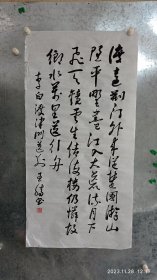 渡远荆门外来从楚国游山
随平野尽江入大荒流月下
飞天镜云生结海楼仍怜故
乡水万里送行舟
李白渡荆门送别
2023.11.28